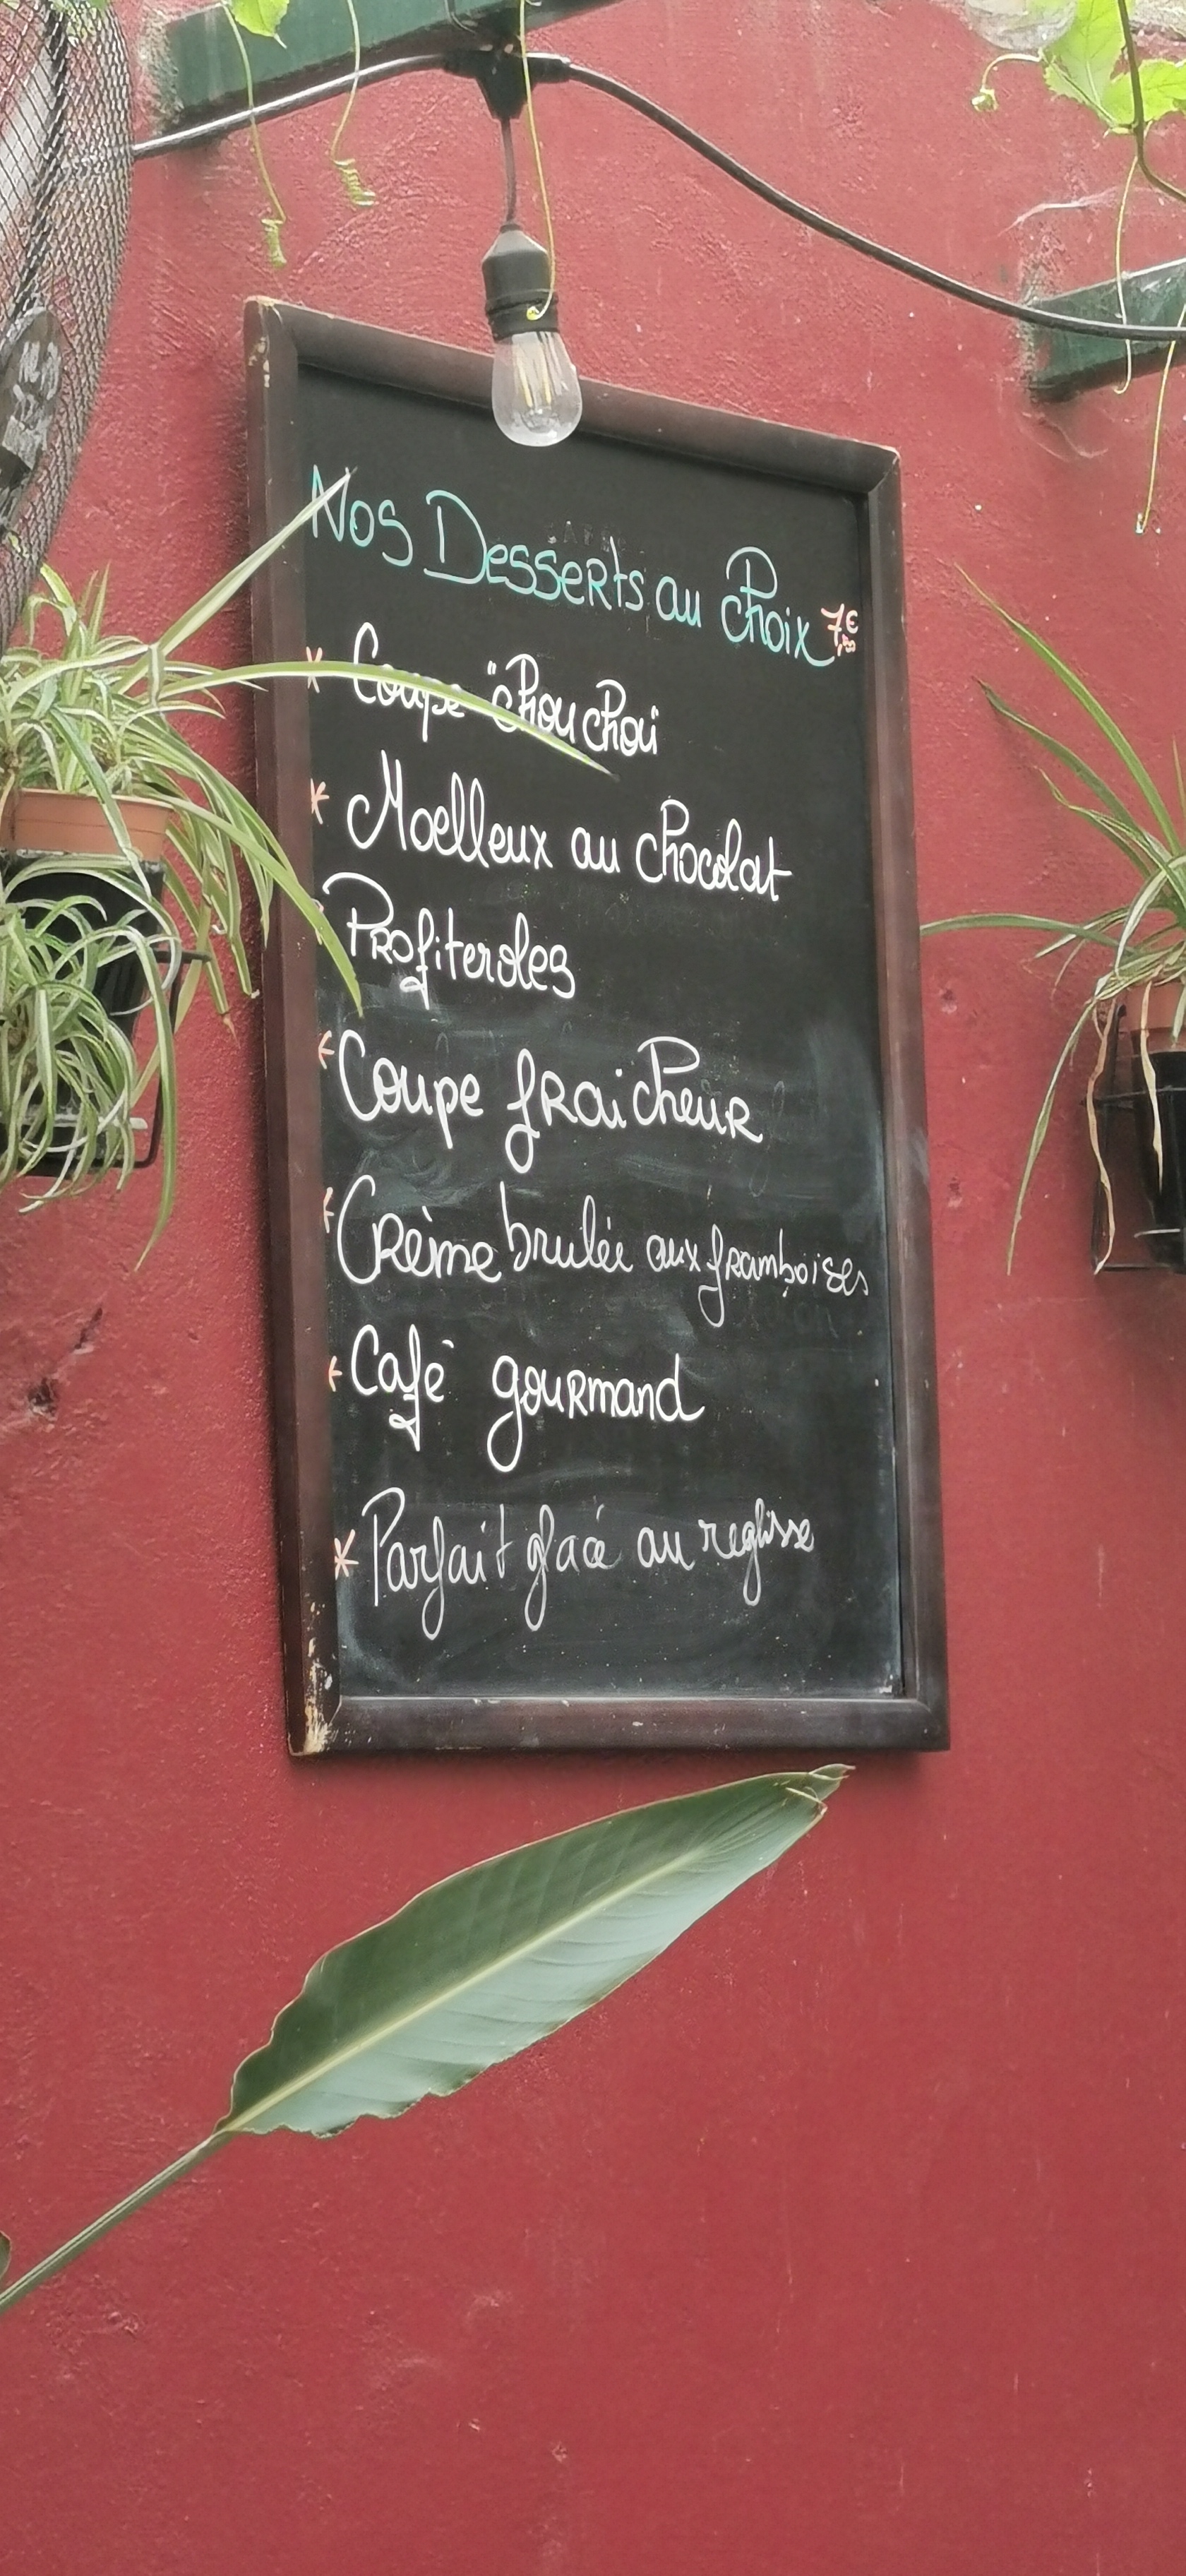 Nos Desserts au choix 7€50
* Coupe "chouchou"
* Moelleux au chocolat
* Profiteroles
* Coupe fraicheur
* Crème brulée aux framboises
* Café gourmand
* Parfait glacé au reglisse